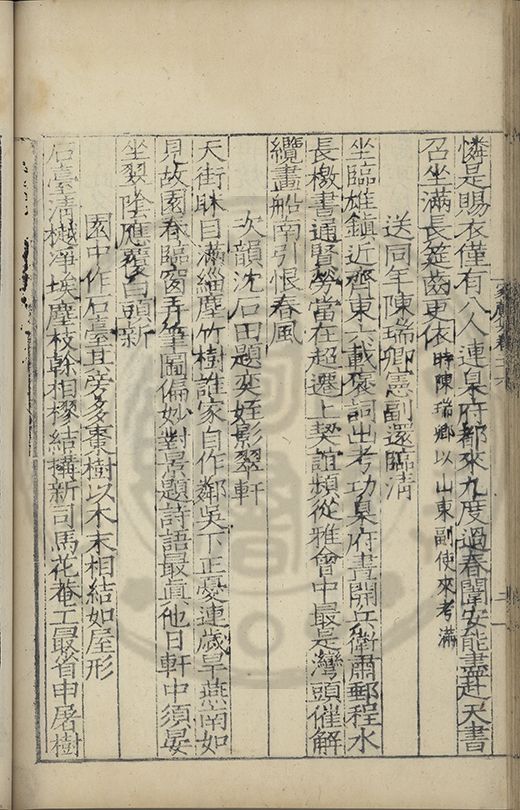 憐是賜衣僅有八人連臬府都來九度過春闈安能盡赴天書
召坐滿長筵齒更依時陳瑞卿以山東副使來考滿
送同年陳瑞卿憲副還臨清
坐臨雄鎮近齊東六載褒詞出考功臬府晝開兵衛肅郵程水
長檄書通賢勞當在超遷上契誼頻從雅會中最是灣頭催解
纜畫船南引恨春風
次韻沈石田題史姪影翠軒
天街眯目滿緇塵竹樹誰家自作鄰吳下正憂連歲旱燕南如
見故園春臨窗弄筆圖偏妙對景題詩語最真他日軒中須晏
坐翠陰應覆白頭新
園中作石臺其旁多棗樹以木末相結如屋形
石臺清樾淨埃塵枝幹相樛結搆新司馬花菴工最省申屠樹